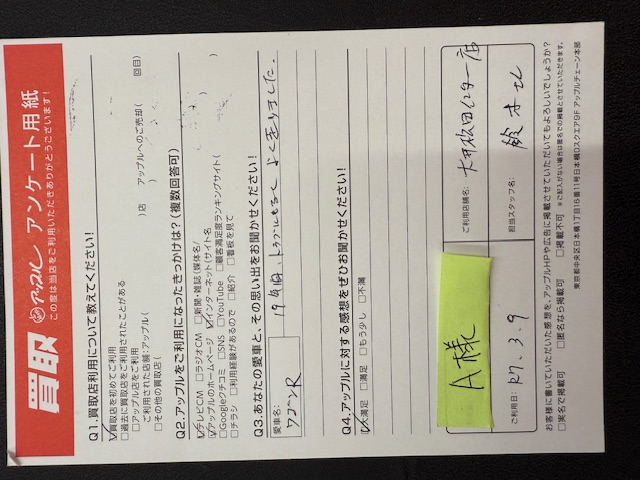 買取 アップル アンケート用紙
この度は当店をご利用いただきありがとうございます!
Q1.買取店利用について教えてください!
☑買取店を初めてご利用
□過去に買取店をご利用されたことがある
□アップル店をご利用
ご利用された店舗:アップル( )店 アップルへのご売却( 回目)
□その他の買取店( )
Q2.アップルをご利用になったきっかけは?(複数回答可)
☑テレビCM □ラジオCM □新聞・雑誌(媒体名/ )
☑アップルのホームページ ☑インターネット(サイト名 )
□Googleクチコミ □SNS □YouTube □顧客満足度ランキングサイト( )
□チラシ □利用経験があるので □紹介 □看板を見て
Q3.あなたの愛車と、その思い出をお聞かせください!
愛車名:
ワゴンR
19年間、トラブルもなく よく走りました。
Q4.アップルに対する感想をぜひお聞かせください!
☑大満足 □満足 □もう少し □不満
ご利用店舗名: 大平松田インター店
A様
ご利用日: R7.3.9
担当スタッフ名: 鈴木
お客様に書いていただいた感想を、アップルHPや広告に掲載させていただいてもよろしいでしょうか?
□実名で掲載可 □匿名なら掲載可 □掲載不可 ※ご記入がない場合は匿名での掲載とさせていただきます。
東京都中央区日本橋1丁目16番11号日本橋Dスクエア9F アップルチェーン本部